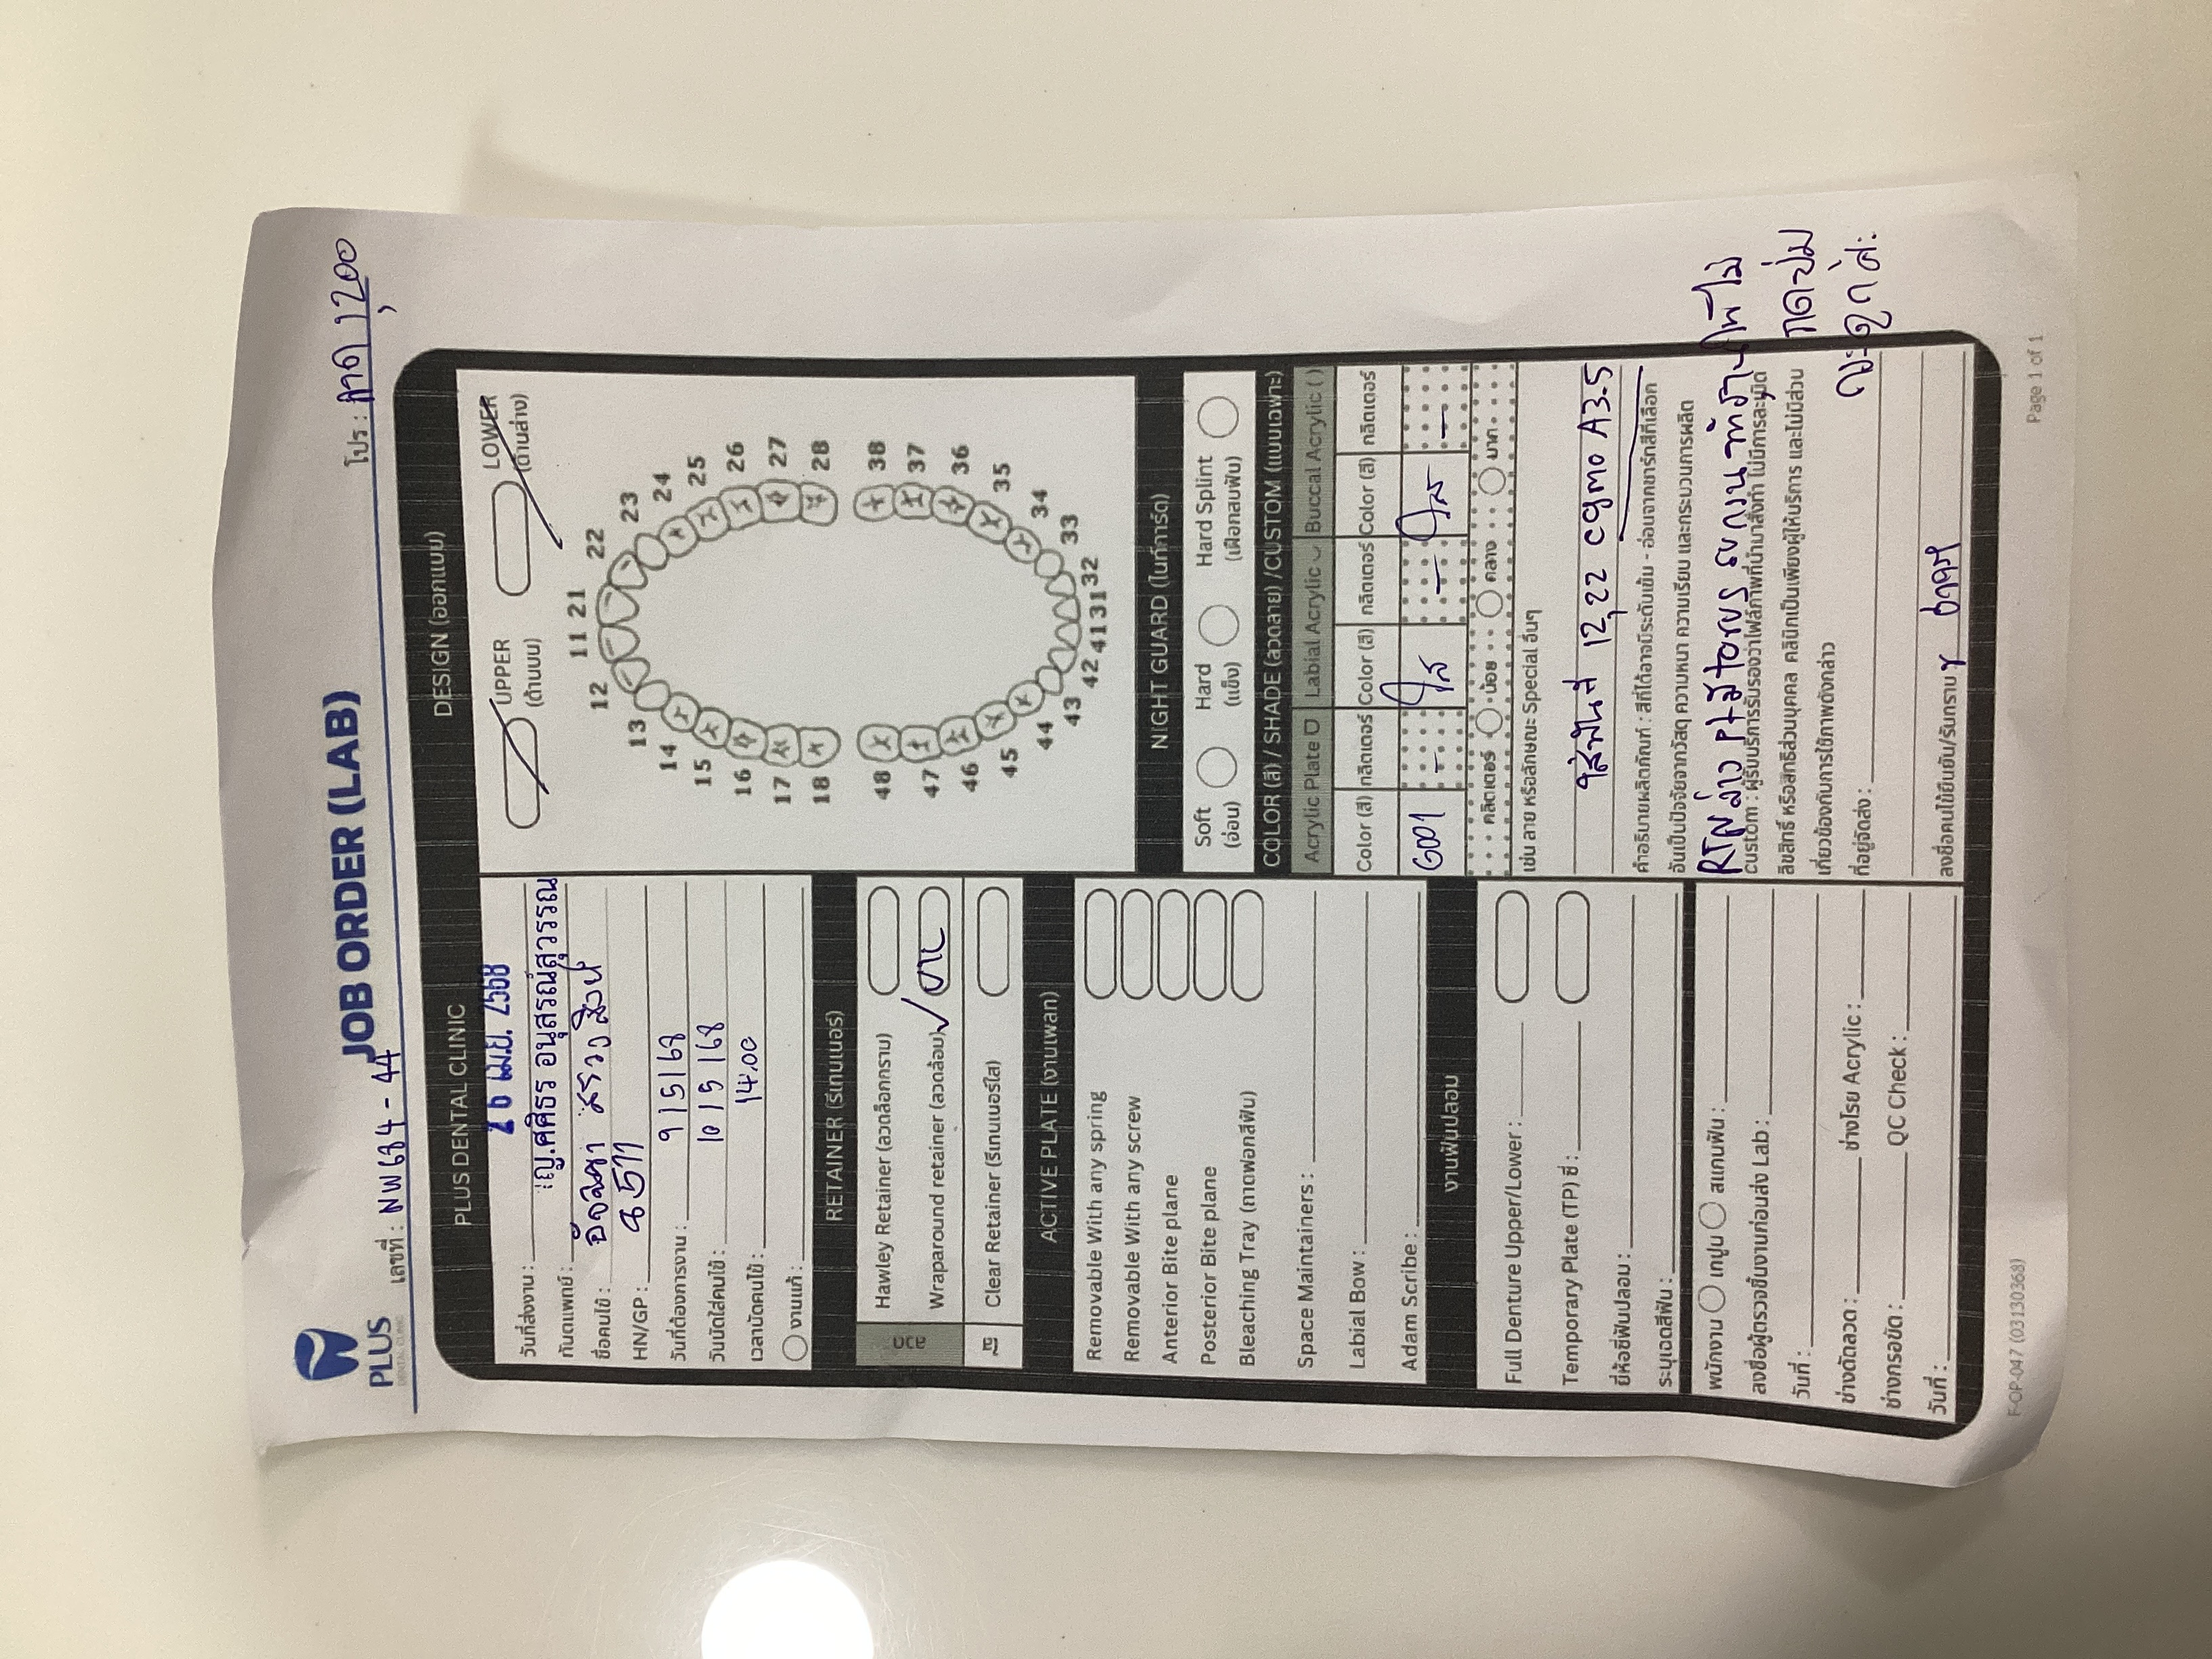 PLUS
DENTAL CLINIC
JOB ORDER (LAB)
เลขที่ : NW684-44
โปร : ลวด 1,200
PLUS DENTAL CLINIC
วันที่ส่งงาน : 26 เม.ย. 2568
ทันตแพทย์ : ญ.ศศิธร อนุสรณ์สุวรรณ
ชื่อคนไข้ :
HN/GP : 8511
วันที่ต้องการงาน : 9/5/68
วันนัดใส่คนไข้ : 10/5/68
เวลานัดคนไข้ : 14.00
งานแก้ :
RETAINER (รีเทนเนอร์)
ลวด
Hawley Retainer (ลวดล็อกกราม)
Wraparound retainer (ลวดล้อม)
ใส
Clear Retainer (รีเทนเนอร์ใส)
ACTIVE PLATE (งานเพลท)
Removable With any spring
Removable With any screw
Anterior Bite plane
Posterior Bite plane
Bleaching Tray (ถาดฟอกสีฟัน)
Space Maintainers :
Labial Bow :
Adam Scribe :
งานฟันปลอม
Full Denture Upper/Lower :
Temporary Plate (TP) ซี่ :
ยี่ห้อซี่ฟันปลอม :
ระบุเฉดสีฟัน :
พนักงาน เทปูน สแกนฟัน :
ลงชื่อผู้ตรวจชิ้นงานก่อนส่ง Lab :
วันที่ :
ช่างดัดลวด : ช่างโรย Acrylic :
ช่างกรอขัด : QC Check :
วันที่ :
DESIGN (ออกแบบ)
UPPER (ด้านบน)
LOWER (ด้านล่าง)
11 21
12 22
13 23
14 24
15 25
16 26
17 27
18 28
48 38
47 37
46 36
45 35
44 34
43 33
42 41 31 32
NIGHT GUARD (ไนท์การ์ด)
Soft Hard Hard Splint
(อ่อน) (แข็ง) (เฝือกสบฟัน)
COLOR (สี) / SHADE (ลวดลาย) /CUSTOM (แบบเฉพาะ)
Acrylic Plate Labial Acrylic Buccal Acrylic ( )
Color (สี) กลิตเตอร์ Color (สี) กลิตเตอร์ Color (สี) กลิตเตอร์
G001 - ใส - ใส -
กลิตเตอร์ น้อย กลาง มาก
เช่น ลาย หรือลักษณะ Special อื่นๆ
ใส่ฟันที่ 12,22 cgmo A3.5
คำอธิบายผลิตภัณฑ์ : สีที่ได้อาจมีระดับเข้ม - อ่อนจากชาร์ทสีที่เลือก
อันเป็นปัจจัยจากวัสดุ ความหนา ความเรียบ และกระบวนการผลิต
RTN ล่าง pt มี torus รบกวน ทำฐานให้ไม่
กดปุ่ม
กระดูกค่ะ
custom : ผู้รับบริการรับรองว่าไฟล์ภาพที่นำมาสั่งทำ ไม่มีการละเมิด
ลิขสิทธิ์ หรือสิทธิส่วนบุคคล คลินิกเป็นเพียงผู้ให้บริการ และไม่มีส่วน
เกี่ยวข้องกับการใช้ภาพดังกล่าว
ที่อยู่จัดส่ง :
ลงชื่อคนไข้ยืนยัน/รับทราบ
F-OP-047 (03130368)
Page 1 of 1